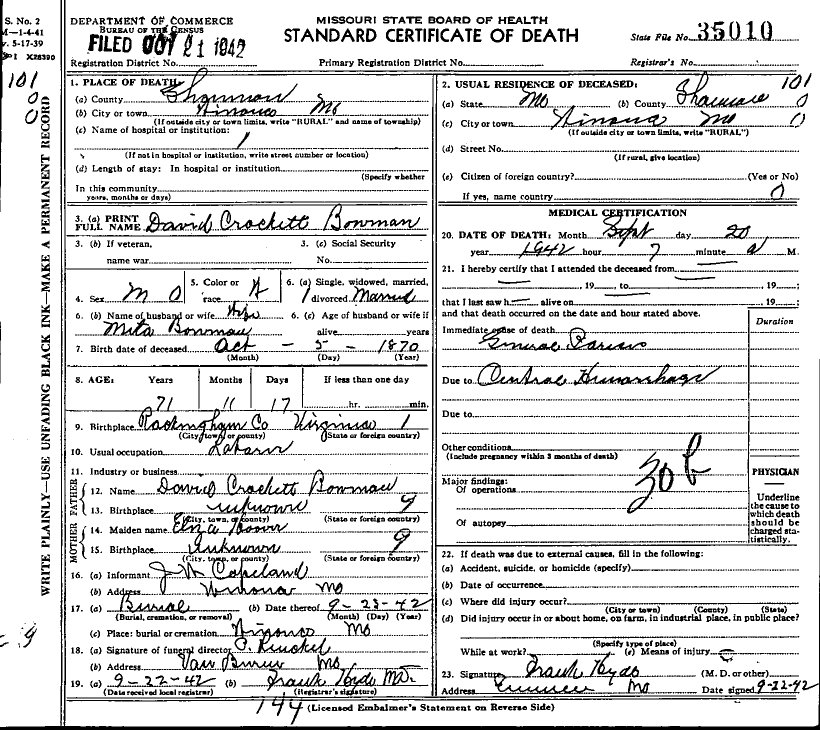 S. No. 2
M—1-4-41
v. 5-17-39
X28390
DEPARTMENT OF COMMERCE
BUREAU OF THE CENSUS
FILED OCT 21 1942
MISSOURI STATE BOARD OF HEALTH
STANDARD CERTIFICATE OF DEATH
State File No. 35010
Registration District No.
Primary Registration District No.
Registrar's No.
101
0
0
WRITE PLAINLY—USE UNFADING BLACK INK—MAKE A PERMANENT RECORD
1. PLACE OF DEATH:
(a) County Shannon
(b) City or town Winona Mo
(If outside city or town limits, write "RURAL" and name of township)
(c) Name of hospital or institution:
(If not in hospital or institution, write street number or location)
(d) Length of stay: In hospital or institution
(Specify whether
In this community
years, months or days)
3. (a) PRINT FULL NAME David Crockett Bowman
3. (b) If veteran, name war
3. (c) Social Security No.
4. Sex M O
5. Color or race W
6. (a) Single, widowed, married, divorced Married
6. (b) Name of husband or wife Wife
Meta Bowman
6. (c) Age of husband or wife if alive years
7. Birth date of deceased Oct - 5 - 1870
(Month) (Day) (Year)
8. AGE: Years Months Days If less than one day
71 11 17 hr. min.
9. Birthplace Rockingham Co Virginia 1
(City, town, or county) (State or foreign country)
10. Usual occupation Laborer
11. Industry or business
FATHER
12. Name David Crockett Bowman
13. Birthplace unknown 9
(City, town, or county) (State or foreign country)
MOTHER
14. Maiden name Eliza Hoover
15. Birthplace Unknown 9
(City, town, or county) (State or foreign country)
16. (a) Informant J W Copeland
(b) Address Winona Mo
17. (a) Burial (b) Date thereof 9-23-42
(Burial, cremation, or removal) (Month) (Day) (Year)
(c) Place: burial or cremation Winona Mo
18. (a) Signature of funeral director
(b) Address Van Buren Mo
19. (a) 9-22-42 (b) Frank Hyde MD.
(Date received local registrar) (Registrar's signature)
2. USUAL RESIDENCE OF DECEASED: 101
(a) State Mo (b) County Shannon 0
(c) City or town Winona Mo 0
(If outside city or town limits, write "RURAL")
(d) Street No.
(If rural, give location)
(e) Citizen of foreign country? (Yes or No)
If yes, name country 0
MEDICAL CERTIFICATION
20. DATE OF DEATH: Month Sept day 20
year 1942 hour 7 minute a M.
21. I hereby certify that I attended the deceased from
, 19 , to , 19 ;
that I last saw h alive on , 19 ;
and that death occurred on the date and hour stated above.
Duration
Immediate cause of death
General Paresis
Due to Central Hemorrhage
Due to
Other conditions
(Include pregnancy within 3 months of death)
30 b
Major findings:
Of operations
Of autopsy
PHYSICIAN
Underline the cause to which death should be charged statistically.
22. If death was due to external causes, fill in the following:
(a) Accident, suicide, or homicide (specify)
(b) Date of occurrence
(c) Where did injury occur?
(City or town) (County) (State)
(d) Did injury occur in or about home, on farm, in industrial place, in public place?
(Specify type of place)
While at work? (e) Means of injury
23. Signature Frank Hyde (M. D. or other)
Address Mo Date signed 9-22-42
144 (Licensed Embalmer's Statement on Reverse Side)